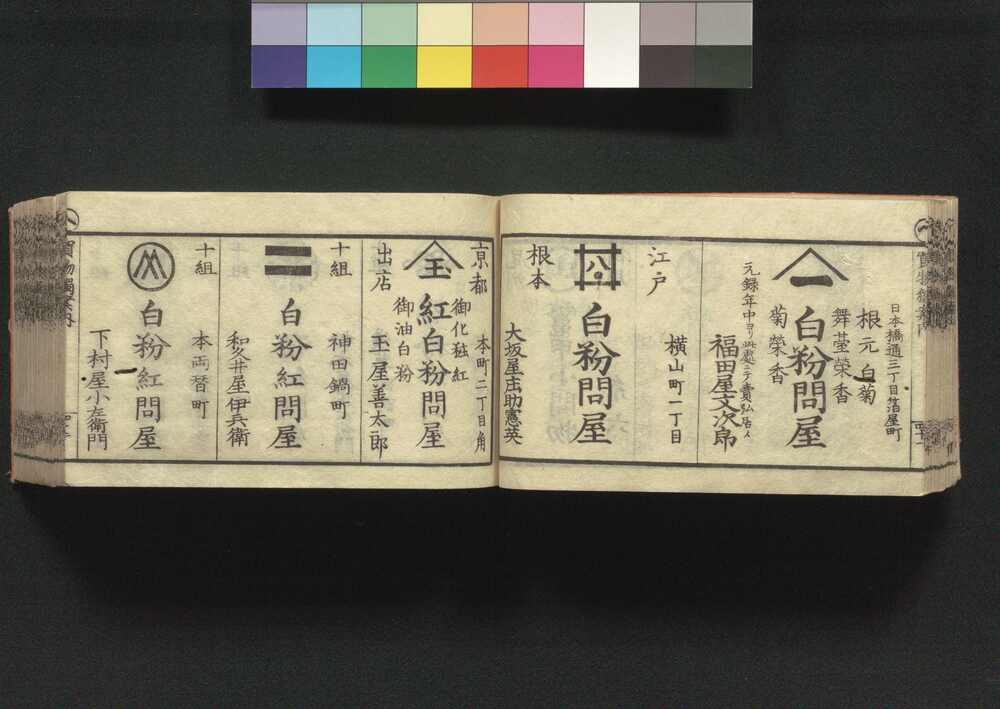 日本橋通三丁目箔屋町
根元白菊
舞臺榮香
一
白粉問屋
菊榮香
元録年中ヨリ此處ニテ賣弘居人
福田屋文次郎
江戸
横山町一丁目
白粉問屋
根本
大坂屋庄助憲英
京都
本町二丁目角
御化粧紅
玉
紅白粉問屋
御油白粉
出店
玉屋善太郎
十組
神田鍋町
白粉紅問屋
和久井屋伊兵衛
十組
本両替町
白粉紅問屋
下村屋小左衛門